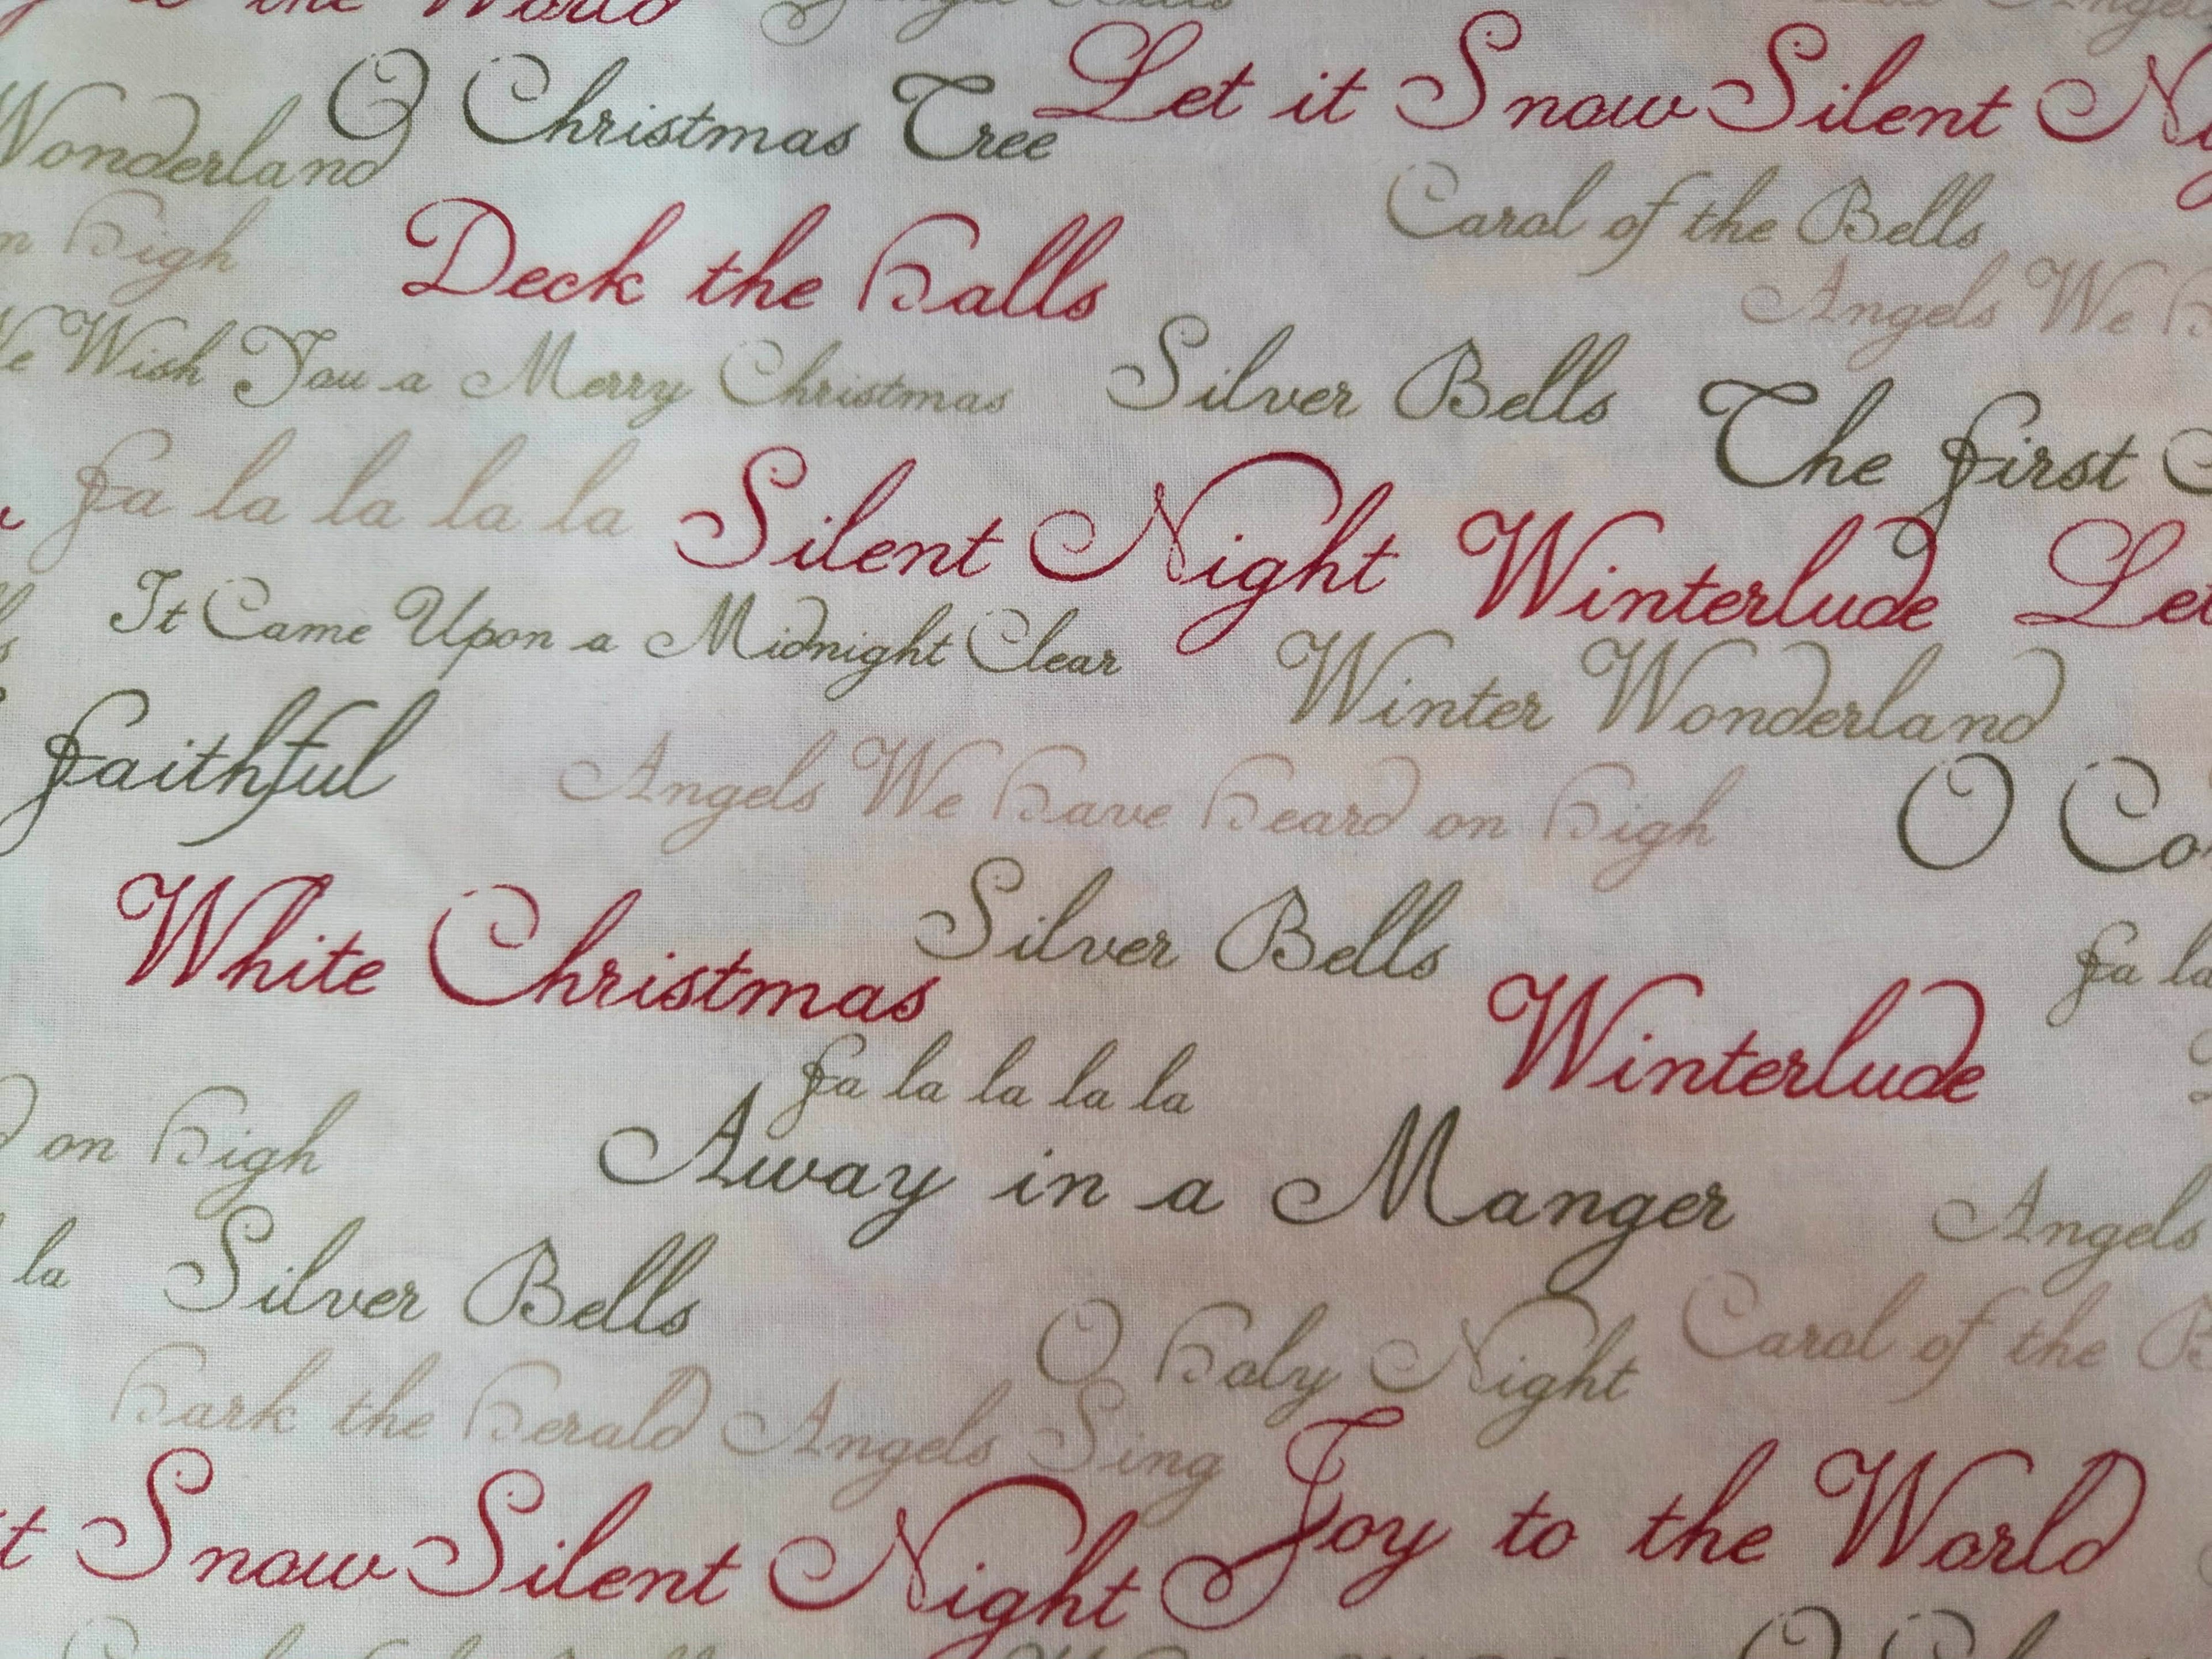 to the World
O Christmas Tree Let it Snow Silent
Wonderland
Carol of the Bells
High
Deck the Halls
Angels We
We Wish You a Merry Christmas Silver Bells
The First
Fa la la la la Silent Night Winterlude Let
It Came Upon a Midnight Clear
Winter Wonderland
Faithful Angels We Have Heard on High O Co
White Christmas Silver Bells
Fa la
Winterlude
Fa la la la la
on High Away in a Manger
Angels
la Silver Bells
O Holy Night Carol of the B
Hark the Herald Angels Sing
Joy to the World
it Snow Silent Night